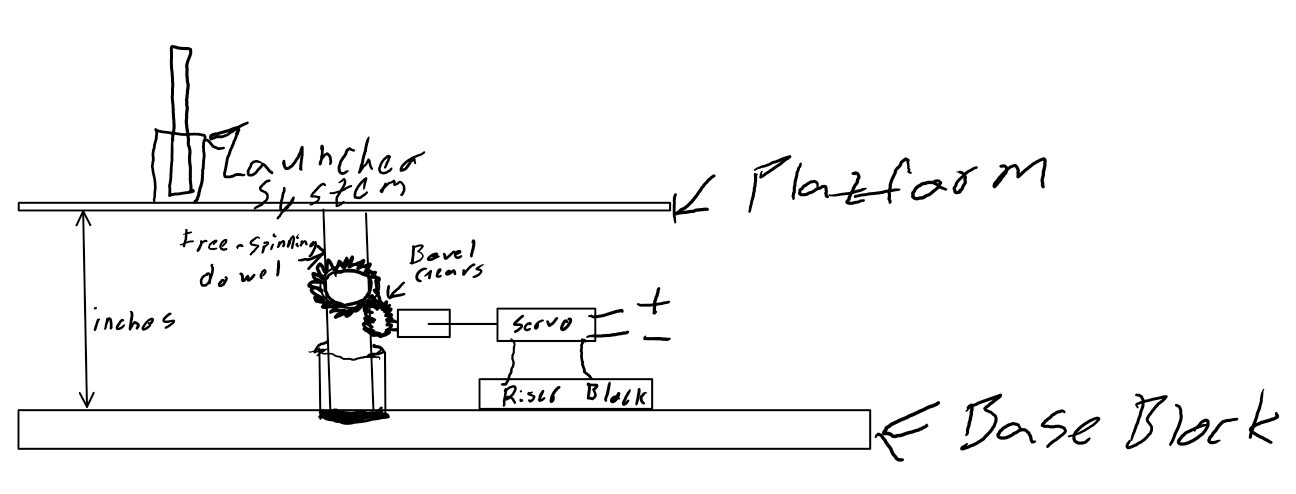 Launcher
system
Platform
Free-spinning
dowel
Bevel
Gears
inches
Servo
+
-
Riser Block
Base Block